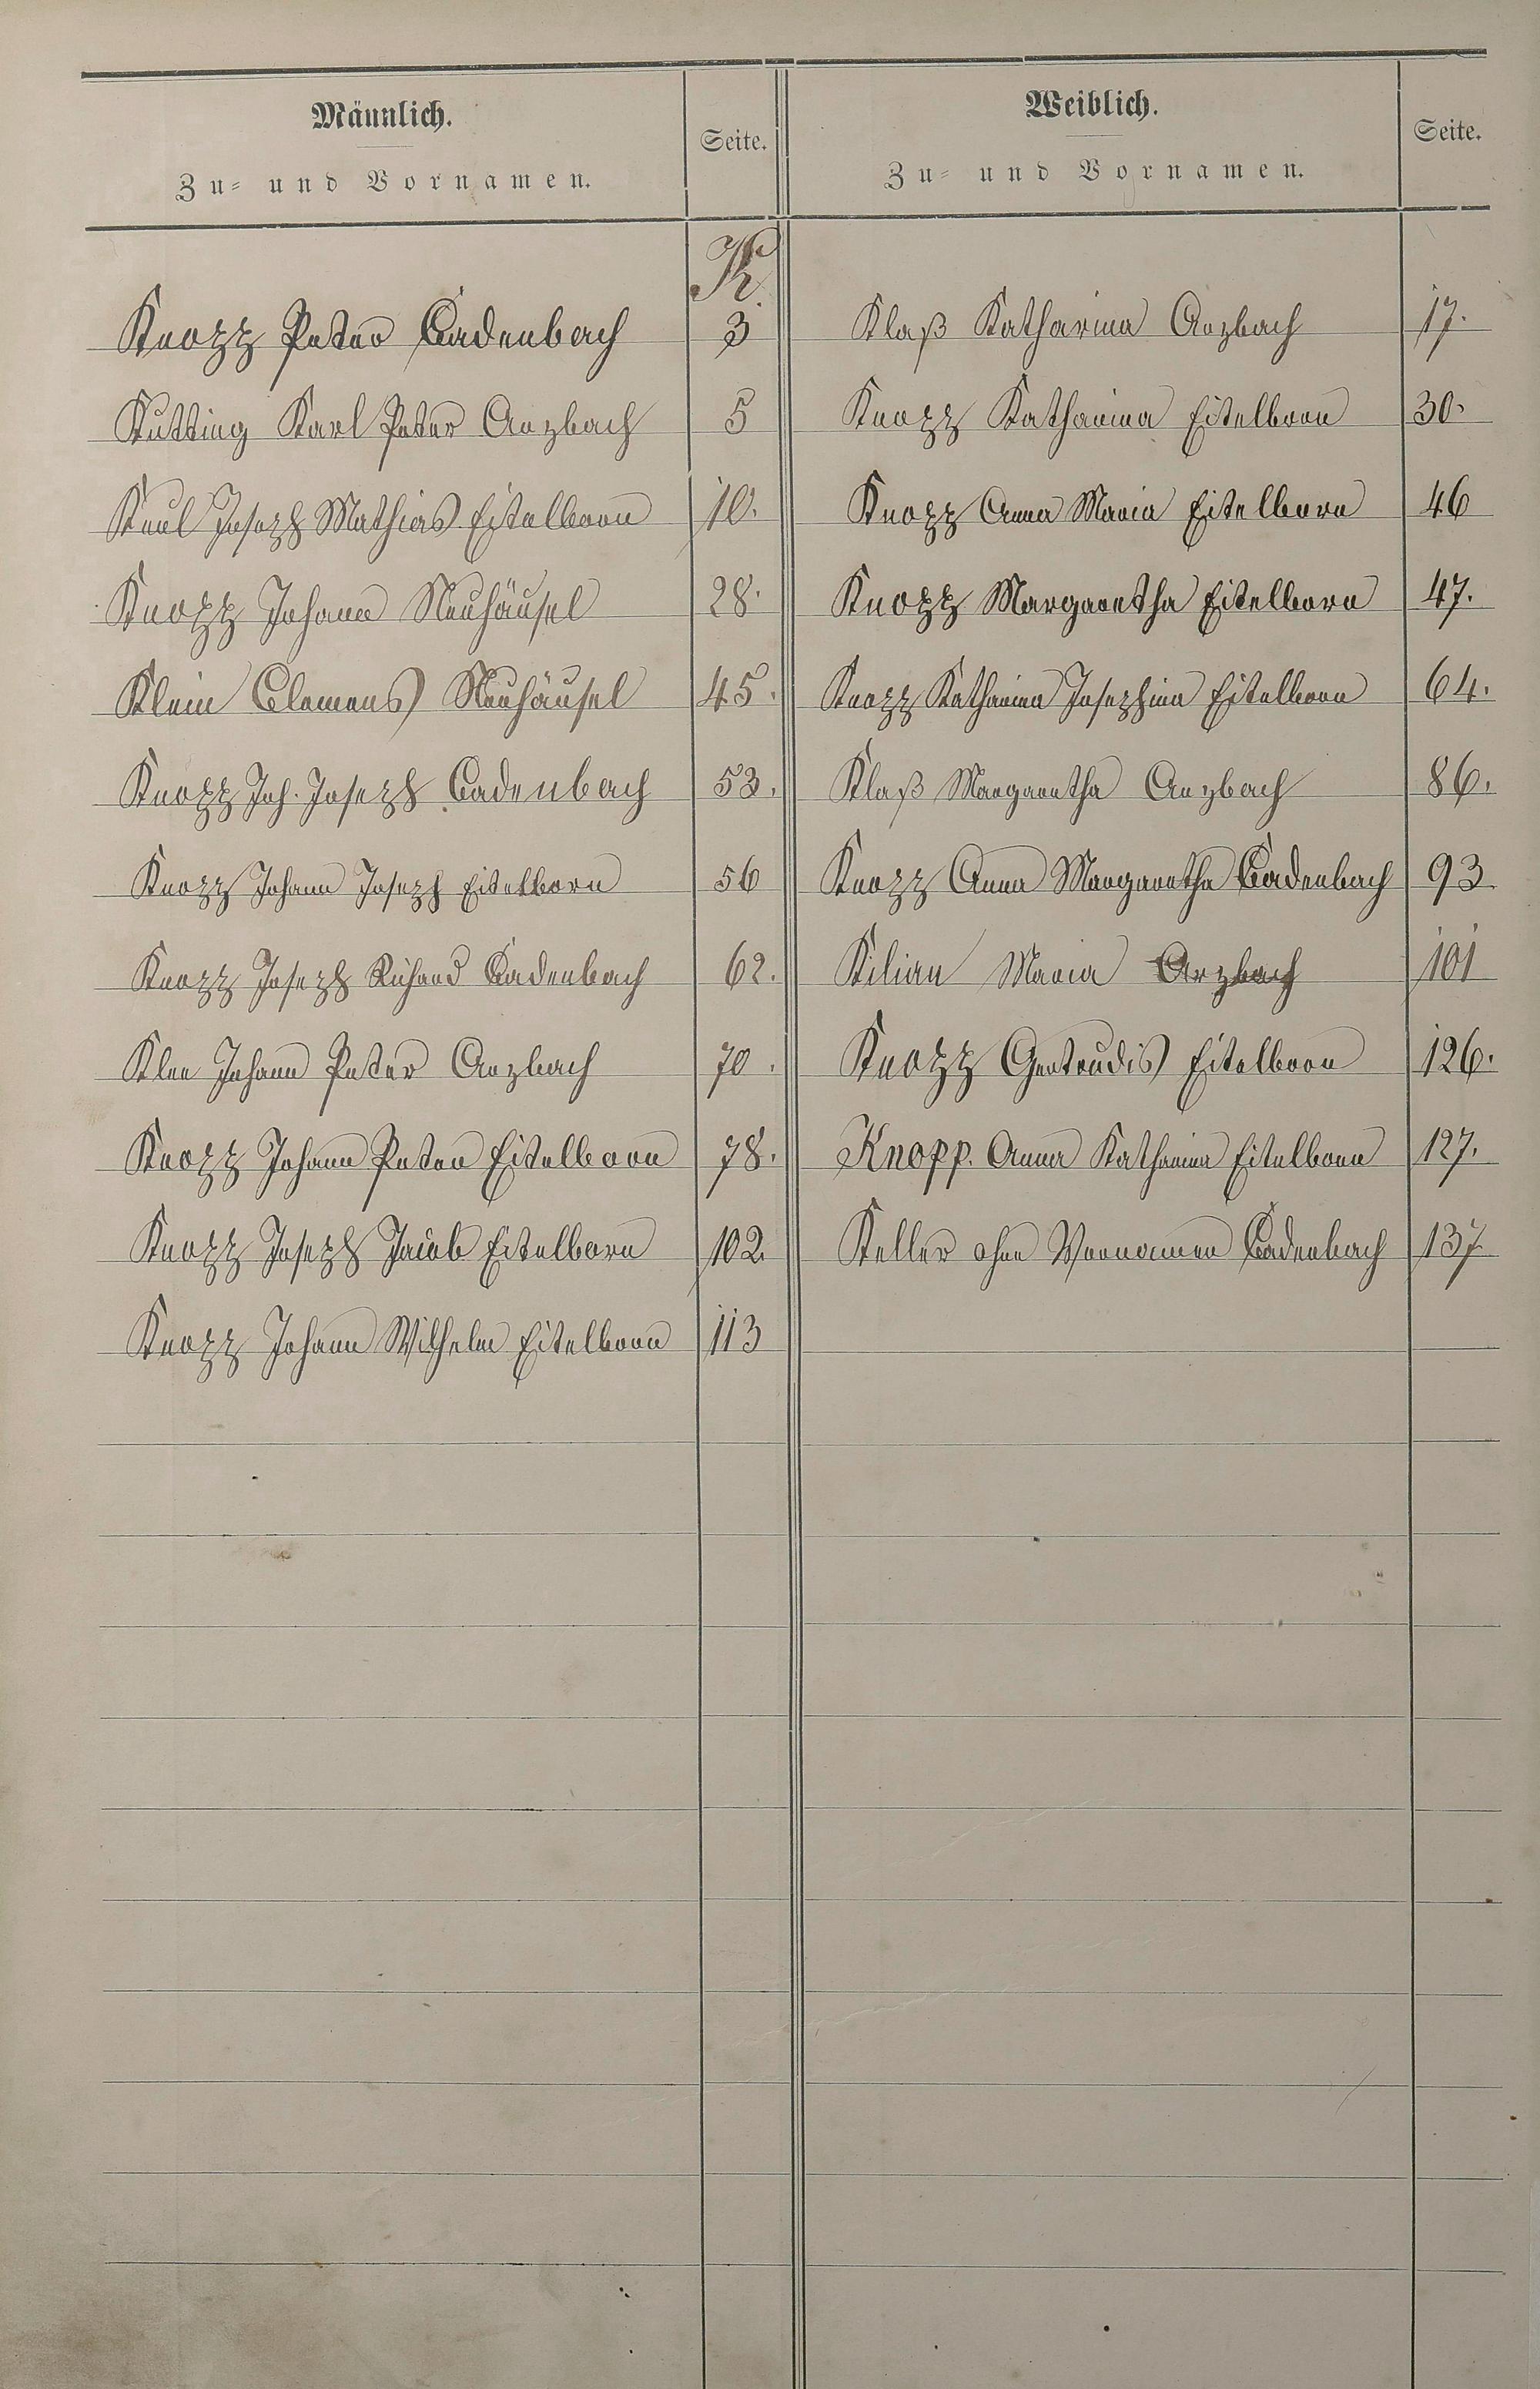 Männlich.
Zu- und Vornamen.
Seite.
Weiblich.
Zu- und Vornamen.
Seite.
K.
Knopp Peter Cadenbach 3
Kutting Karl Peter Arzbach 5
Keul Joseph Mathias Eitelborn 10.
Knopp Johann Neuhäusel 28.
Klein Clemens Neuhäusel 45.
Knopp Joh. Joseph Cadenbach 53.
Knopp Johann Joseph Eitelborn 56
Knopp Joseph Richard Cadenbach 62.
Klee Johann Peter Arzbach 70.
Knopp Johann Peter Eitelborn 78.
Knopp Joseph Jacob Eitelborn 102.
Knopp Johann Wilhelm Eitelborn 113
Klaß Katharina Arzbach 17.
Knopp Katharina Eitelborn 30.
Knopp Anna Maria Eitelborn 46
Knopp Margaretha Eitelborn 47.
Knopp Katharina Josephina Eitelborn 64.
Klaß Margaretha Arzbach 86.
Knopp Anna Margaretha Cadenbach 93
Kilian Maria Arzbach 101
Knopp Gertrudis Eitelborn 126.
Knopp. Anna Katharina Eitelborn 127.
Keller ohne Vornamen Cadenbach 137